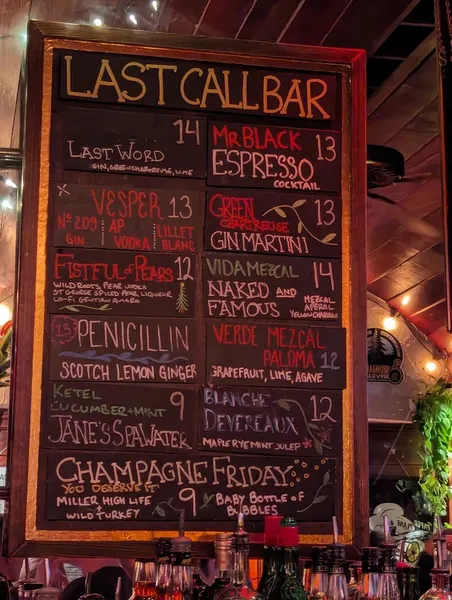 LAST CALL BAR
LAST WORD 14
GIN, GREEN CHARTREUSE, LIME
MR BLACK 13
ESPRESSO
COCKTAIL
VESPER 13
Nº 209 GIN
AP VODKA
LILLET BLANC
GREEN 13
CHARTREUSE
GIN MARTINI
FISTFUL OF PEARS 12
WILD ROOTS PEAR VODKA
ST GEORGE SPICED PEAR LIQUEUR
LO-FI GENTIAN AMARO
VIDA MEZCAL 14
NAKED AND FAMOUS
MEZCAL
APEROL
YELLOW CHARTREUSE
13 PENICILLIN
SCOTCH LEMON GINGER
VERDE MEZCAL
PALOMA 12
GRAPEFRUIT, LIME, AGAVE
KETEL 9
CUCUMBER + MINT
JANE'S SPAWATER
BLANCHE 12
DEVEREAUX
MAPLE RYE MINT JULEP
CHAMPAGNE FRIDAY
YOU DESERVE IT
MILLER HIGH LIFE
+ WILD TURKEY
9
BABY BOTTLE OF
BUBBLES